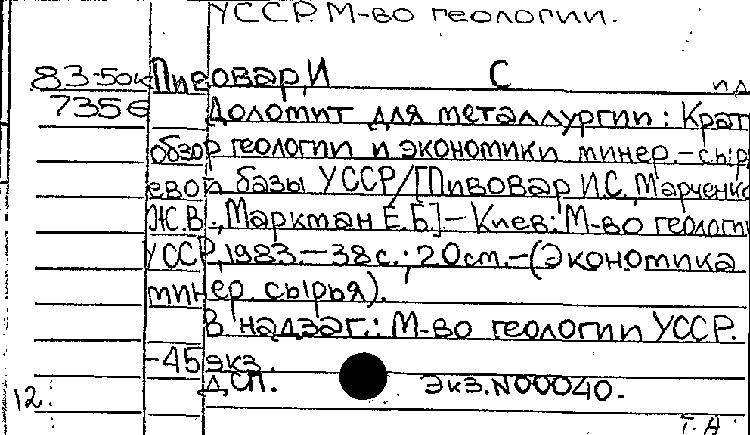 УССР. М-во геологии.
83-50к Пивовар, И С
пд
7356 Доломит для металлургии: Крат
обзор геологии и экономики минер.-сырь
евой базы УССР/[Пивовар И.С., Марченко
Ж.В., Марктан Е.Б.]-Киев: М-во геологии
УССР, 1983.-38с.; 20см.-(Экономика
минер. сырья).
В надзаг.: М-во геологии УССР.
-45экз.
ДСП. Экз.N00040.
12.
Т.А